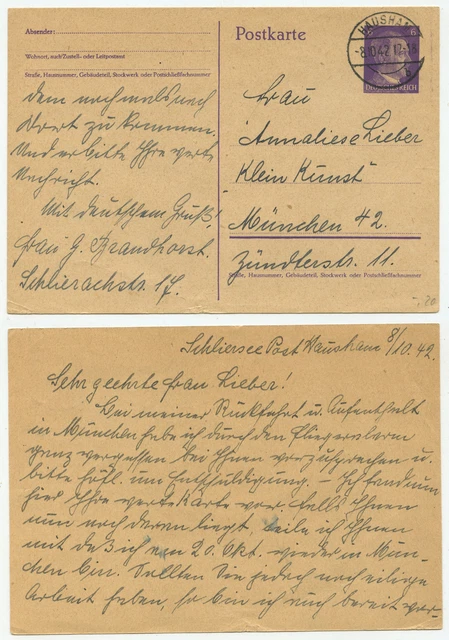 Absender:
Wohnort, auch Zustell- oder Leitpostamt
Straße, Hausnummer, Gebäudeteil, Stockwerk oder Postschließfachnummer
dem nochmals nach
dort zu kommen.
Und erbitte Ihre werte
Nachricht.
Mit deutschem Gruß!
Frau G. Brandhorst.
Schlierachstr. 17.
Postkarte
HAUSHAM
-8.10.42.12-13
b
6
Frau
Annaliese Lieber
"Klein Kunst"
München 42.
Zündterstr. 11.
Straße, Hausnummer, Gebäudeteil, Stockwerk oder Postschließfachnummer
-.20
Schliersee Post Hausham 8/10. 42.
Sehr geehrte Frau Lieber!
Bei meiner Rückfahrt u. Aufenthalt
in München habe ich durch den Fliegeralarm
ganz vergessen bei Ihnen vorzusprechen u.
bitte höfl. um Entschuldigung. – Ich fand nun
hier Ihre werte Karte vor, falls Ihnen
nun noch daran liegt teile ich Ihnen
mit daß ich am 20. Okt. wieder in Mün-
chen bin. Sollten Sie jedoch noch eilige
Arbeit haben, so bin ich auch bereit vor-